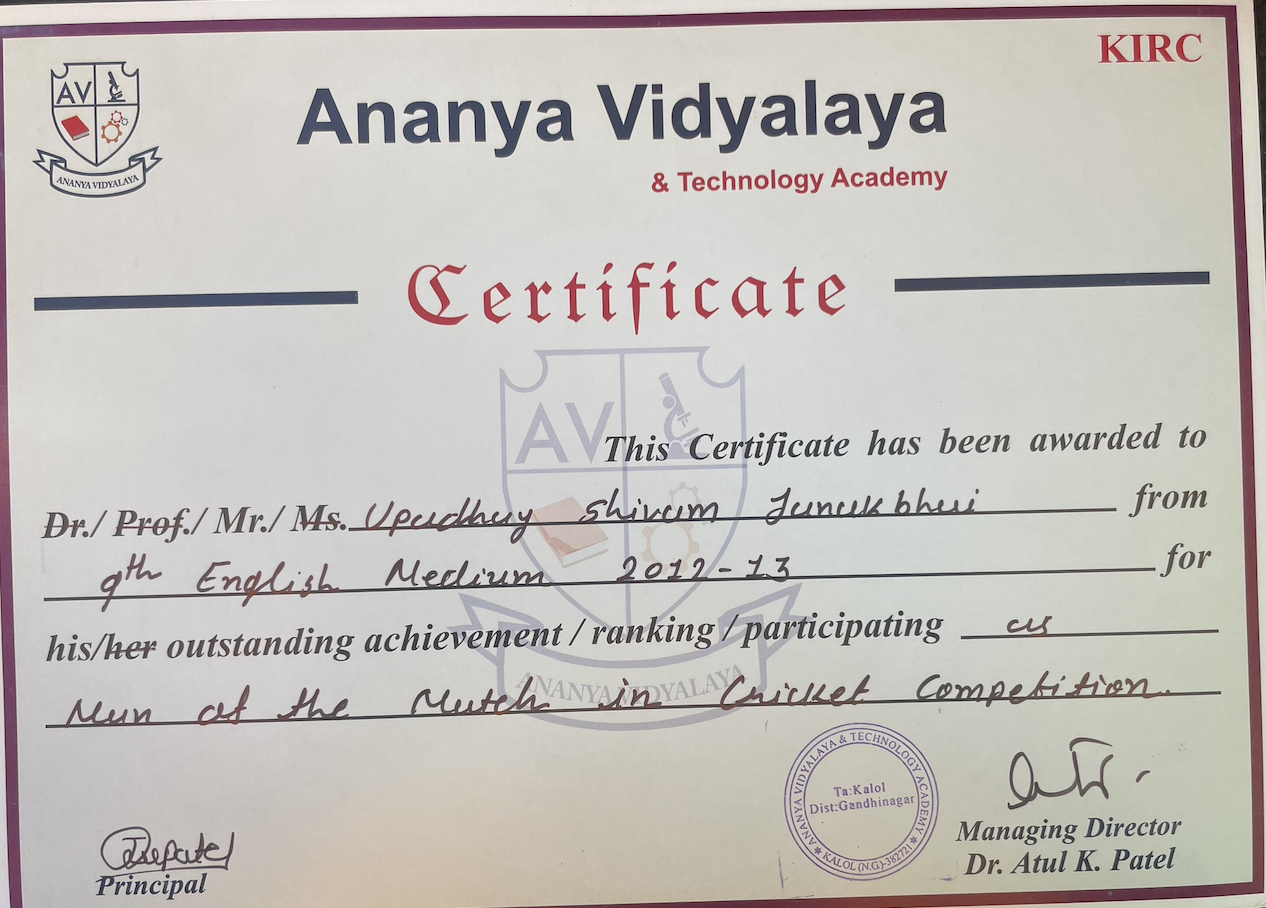 KIRC
AV
ANANYA VIDYALAYA
Ananya Vidyalaya
& Technology Academy
Certificate
AV
This Certificate has been awarded to
Dr./ Prof./ Mr./ Ms. Upadhyay Shivam Janakbhai from
9th English Medium 2012-13 for
his/her outstanding achievement / ranking / participating as
Man of the Match in Cricket Competition.
ANANYA VIDYALAYA
ANANYA VIDYALAYA & TECHNOLOGY ACADEMY
Ta:Kalol
Dist:Gandhinagar
KALOL (N.G)-382721
Principal
Managing Director
Dr. Atul K. Patel